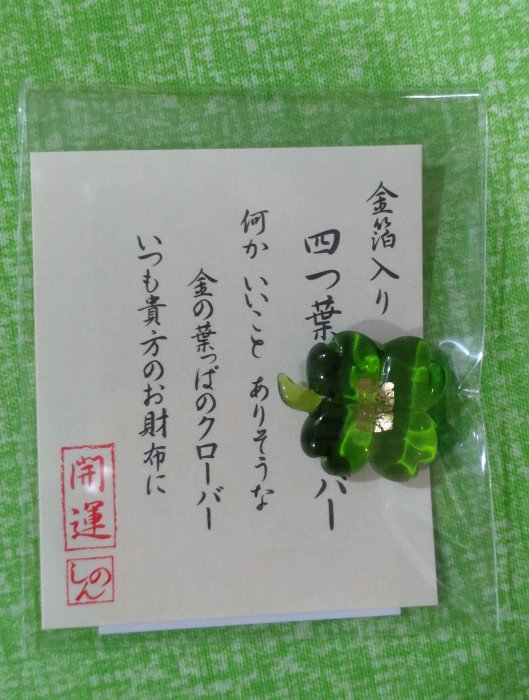 金箔入り
四つ葉 バー
何か いいこと ありそうな
金の葉っぱのクローバー
いつも貴方のお財布に
開運
しのん